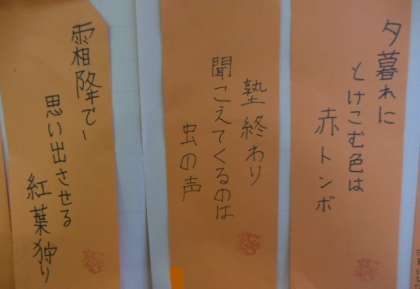 夕暮れに
とけこむ色は
赤トンボ
塾終わり
聞こえてくるのは
虫の声
霜降で
思い出させる
紅葉狩り